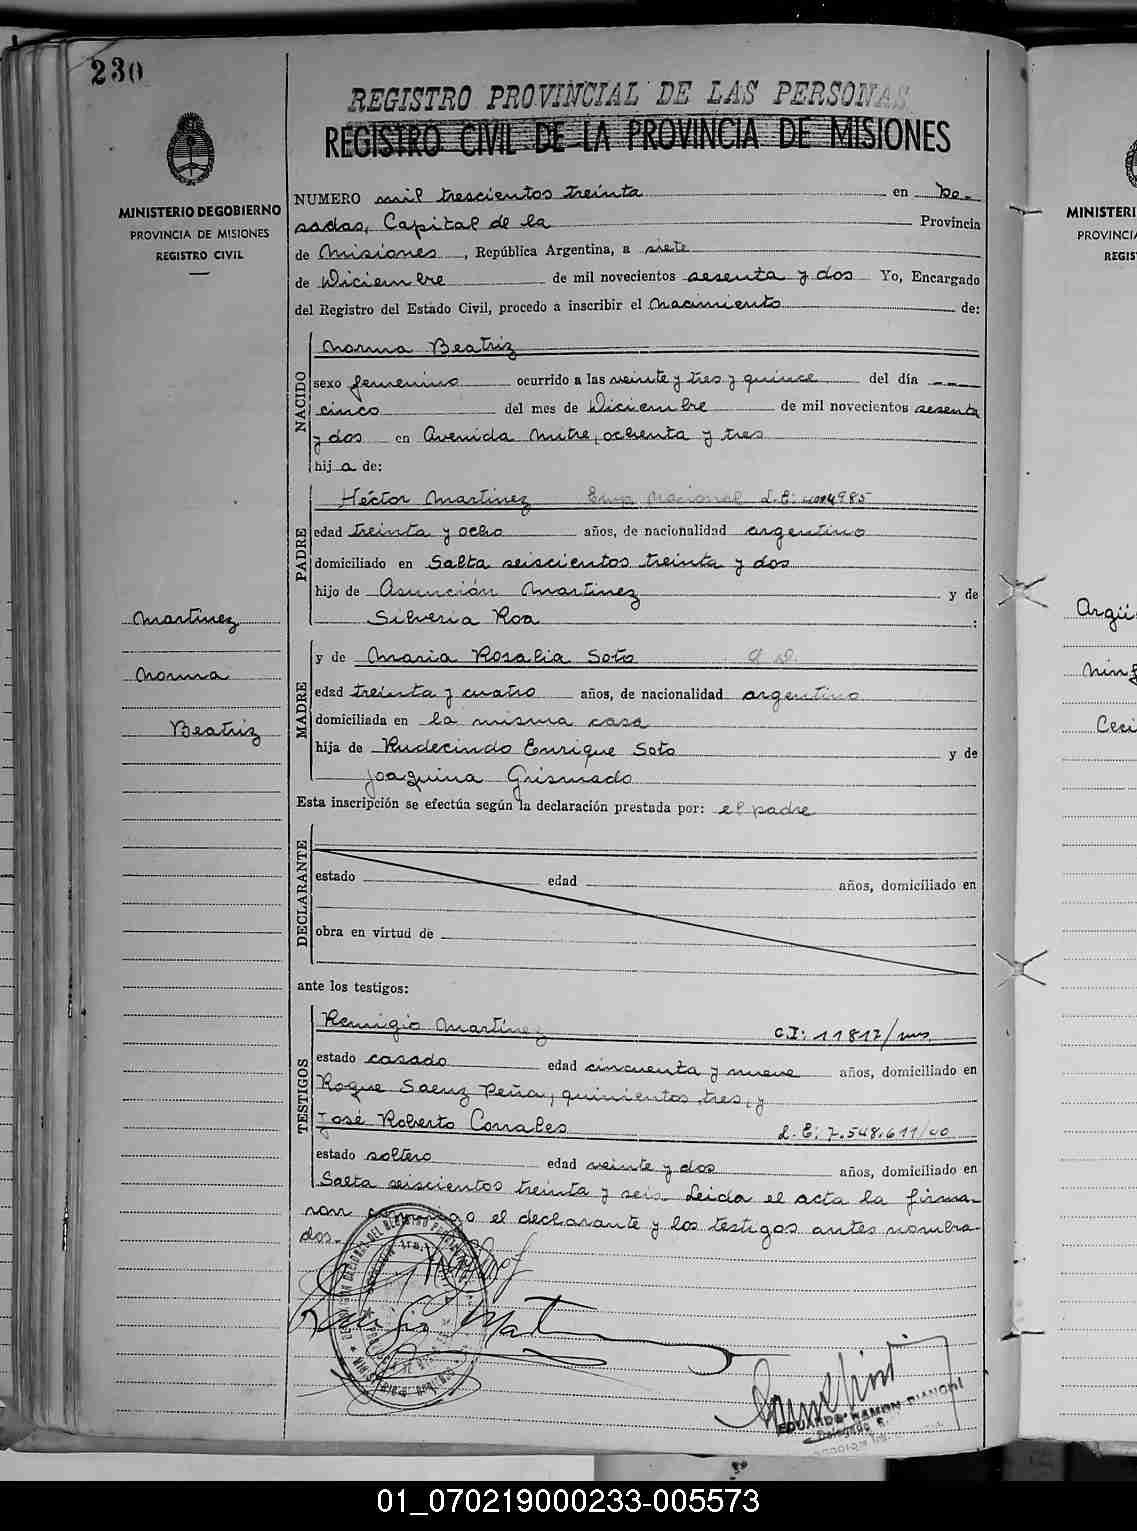 230
REGISTRO PROVINCIAL DE LAS PERSONAS
REGISTRO CIVIL DE LA PROVINCIA DE MISIONES
MINISTERIO DE GOBIERNO
PROVINCIA DE MISIONES
REGISTRO CIVIL
NUMERO mil trescientos treinta en Po-
sadas, Capital de la Provincia
de Misiones, República Argentina, a siete
de Diciembre de mil novecientos sesenta y dos Yo, Encargado
del Registro del Estado Civil, procedo a inscribir el nacimiento de:
NACIDO
Norma Beatriz
sexo femenino ocurrido a las veinte y tres y quince del día
cinco del mes de Diciembre de mil novecientos sesenta
y dos en Avenida Mitre, ochenta y tres
hij a de:
PADRE
Héctor Martinez
edad treinta y ocho años, de nacionalidad argentino
domiciliado en Salta seiscientos treinta y dos
hijo de Asunción Martinez y de
Silveria Roa :
MADRE
y de Maria Rosalia Soto
edad treinta y cuatro años, de nacionalidad argentino
domiciliada en la misma casa
hija de Rudecindo Enrique Soto y de
Joaquina Grismado
Esta inscripción se efectúa según la declaración prestada por: el padre
DECLARANTE
estado edad años, domiciliado en
obra en virtud de
ante los testigos:
TESTIGOS
Remigio Martínez C.I: 11817/
estado casado edad cincuenta y nueve años, domiciliado en
Roque Saenz Peña, quinientos tres, y
José Roberto Corrales L.E: 7.548.611/
estado soltero edad veinte y dos años, domiciliado en
Salta seiscientos treinta y seis. Leida el acta la firma-
ron go el declarante y los testigos antes nombra-
dos.-
Martinez
Norma
Beatriz
EDUARDO RAMON BIANCHI
Delegado
MINISTERI
PROVINCIA
REGIS
Argü
Ninf
Ceci
01_070219000233-005573